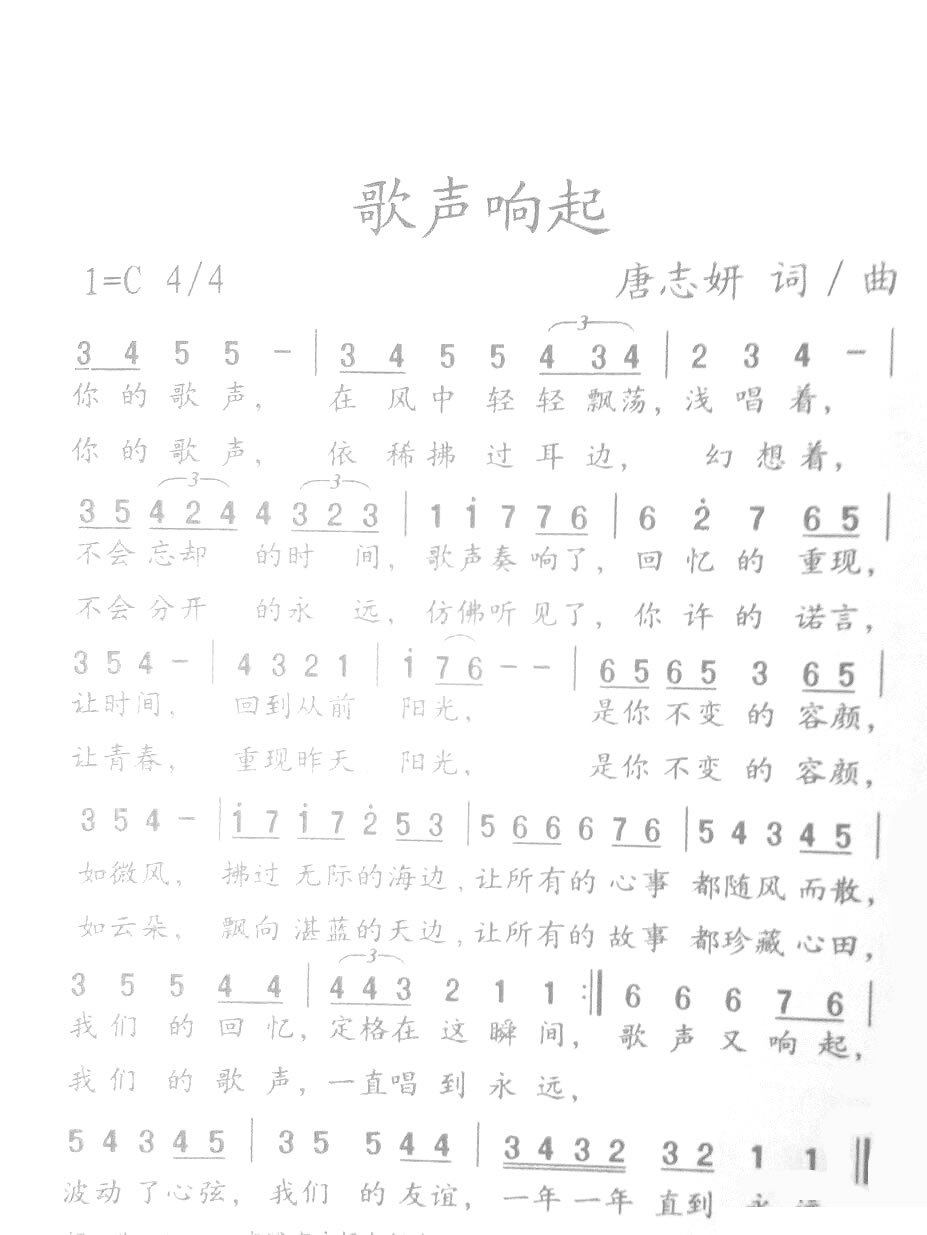 歌声响起
1=C 4/4 唐志妍 词 / 曲
3 4 5 5 - | 3 4 5 5 4 3 4 | 2 3 4 - |
你的歌声, 在风中轻轻飘荡, 浅唱着,
你的歌声, 依稀拂过耳边, 幻想着,
3 5 4 2 4 4 3 2 3 | 1 1̇ 7 7 6 | 6 2̇ 7 6 5 |
不会忘却的时间, 歌声奏响了, 回忆的重现,
不会分开的永远, 仿佛听见了, 你许的诺言,
3 5 4 - | 4 3 2 1 | 1̇ 7 6 - - | 6 5 6 5 3 6 5 |
让时间, 回到从前 阳光, 是你不变的容颜,
让青春, 重现昨天 阳光, 是你不变的容颜,
3 5 4 - | 1̇ 7 1̇ 7 2̇ 5 3 | 5 6 6 6 7 6 | 5 4 3 4 5 |
如微风, 拂过无际的海边, 让所有的心事 都随风而散,
如云朵, 飘向湛蓝的天边, 让所有的故事 都珍藏心田,
3 5 5 4 4 | 4 4 3 2 1 1 :|| 6 6 6 7 6 |
我们的回忆, 定格在这瞬间, 歌声又响起,
我们的歌声, 一直唱到永远,
5 4 3 4 5 | 3 5 5 4 4 | 3 4 3 2 3 2 1 1 ||
波动了心弦, 我们的友谊, 一年一年直到永